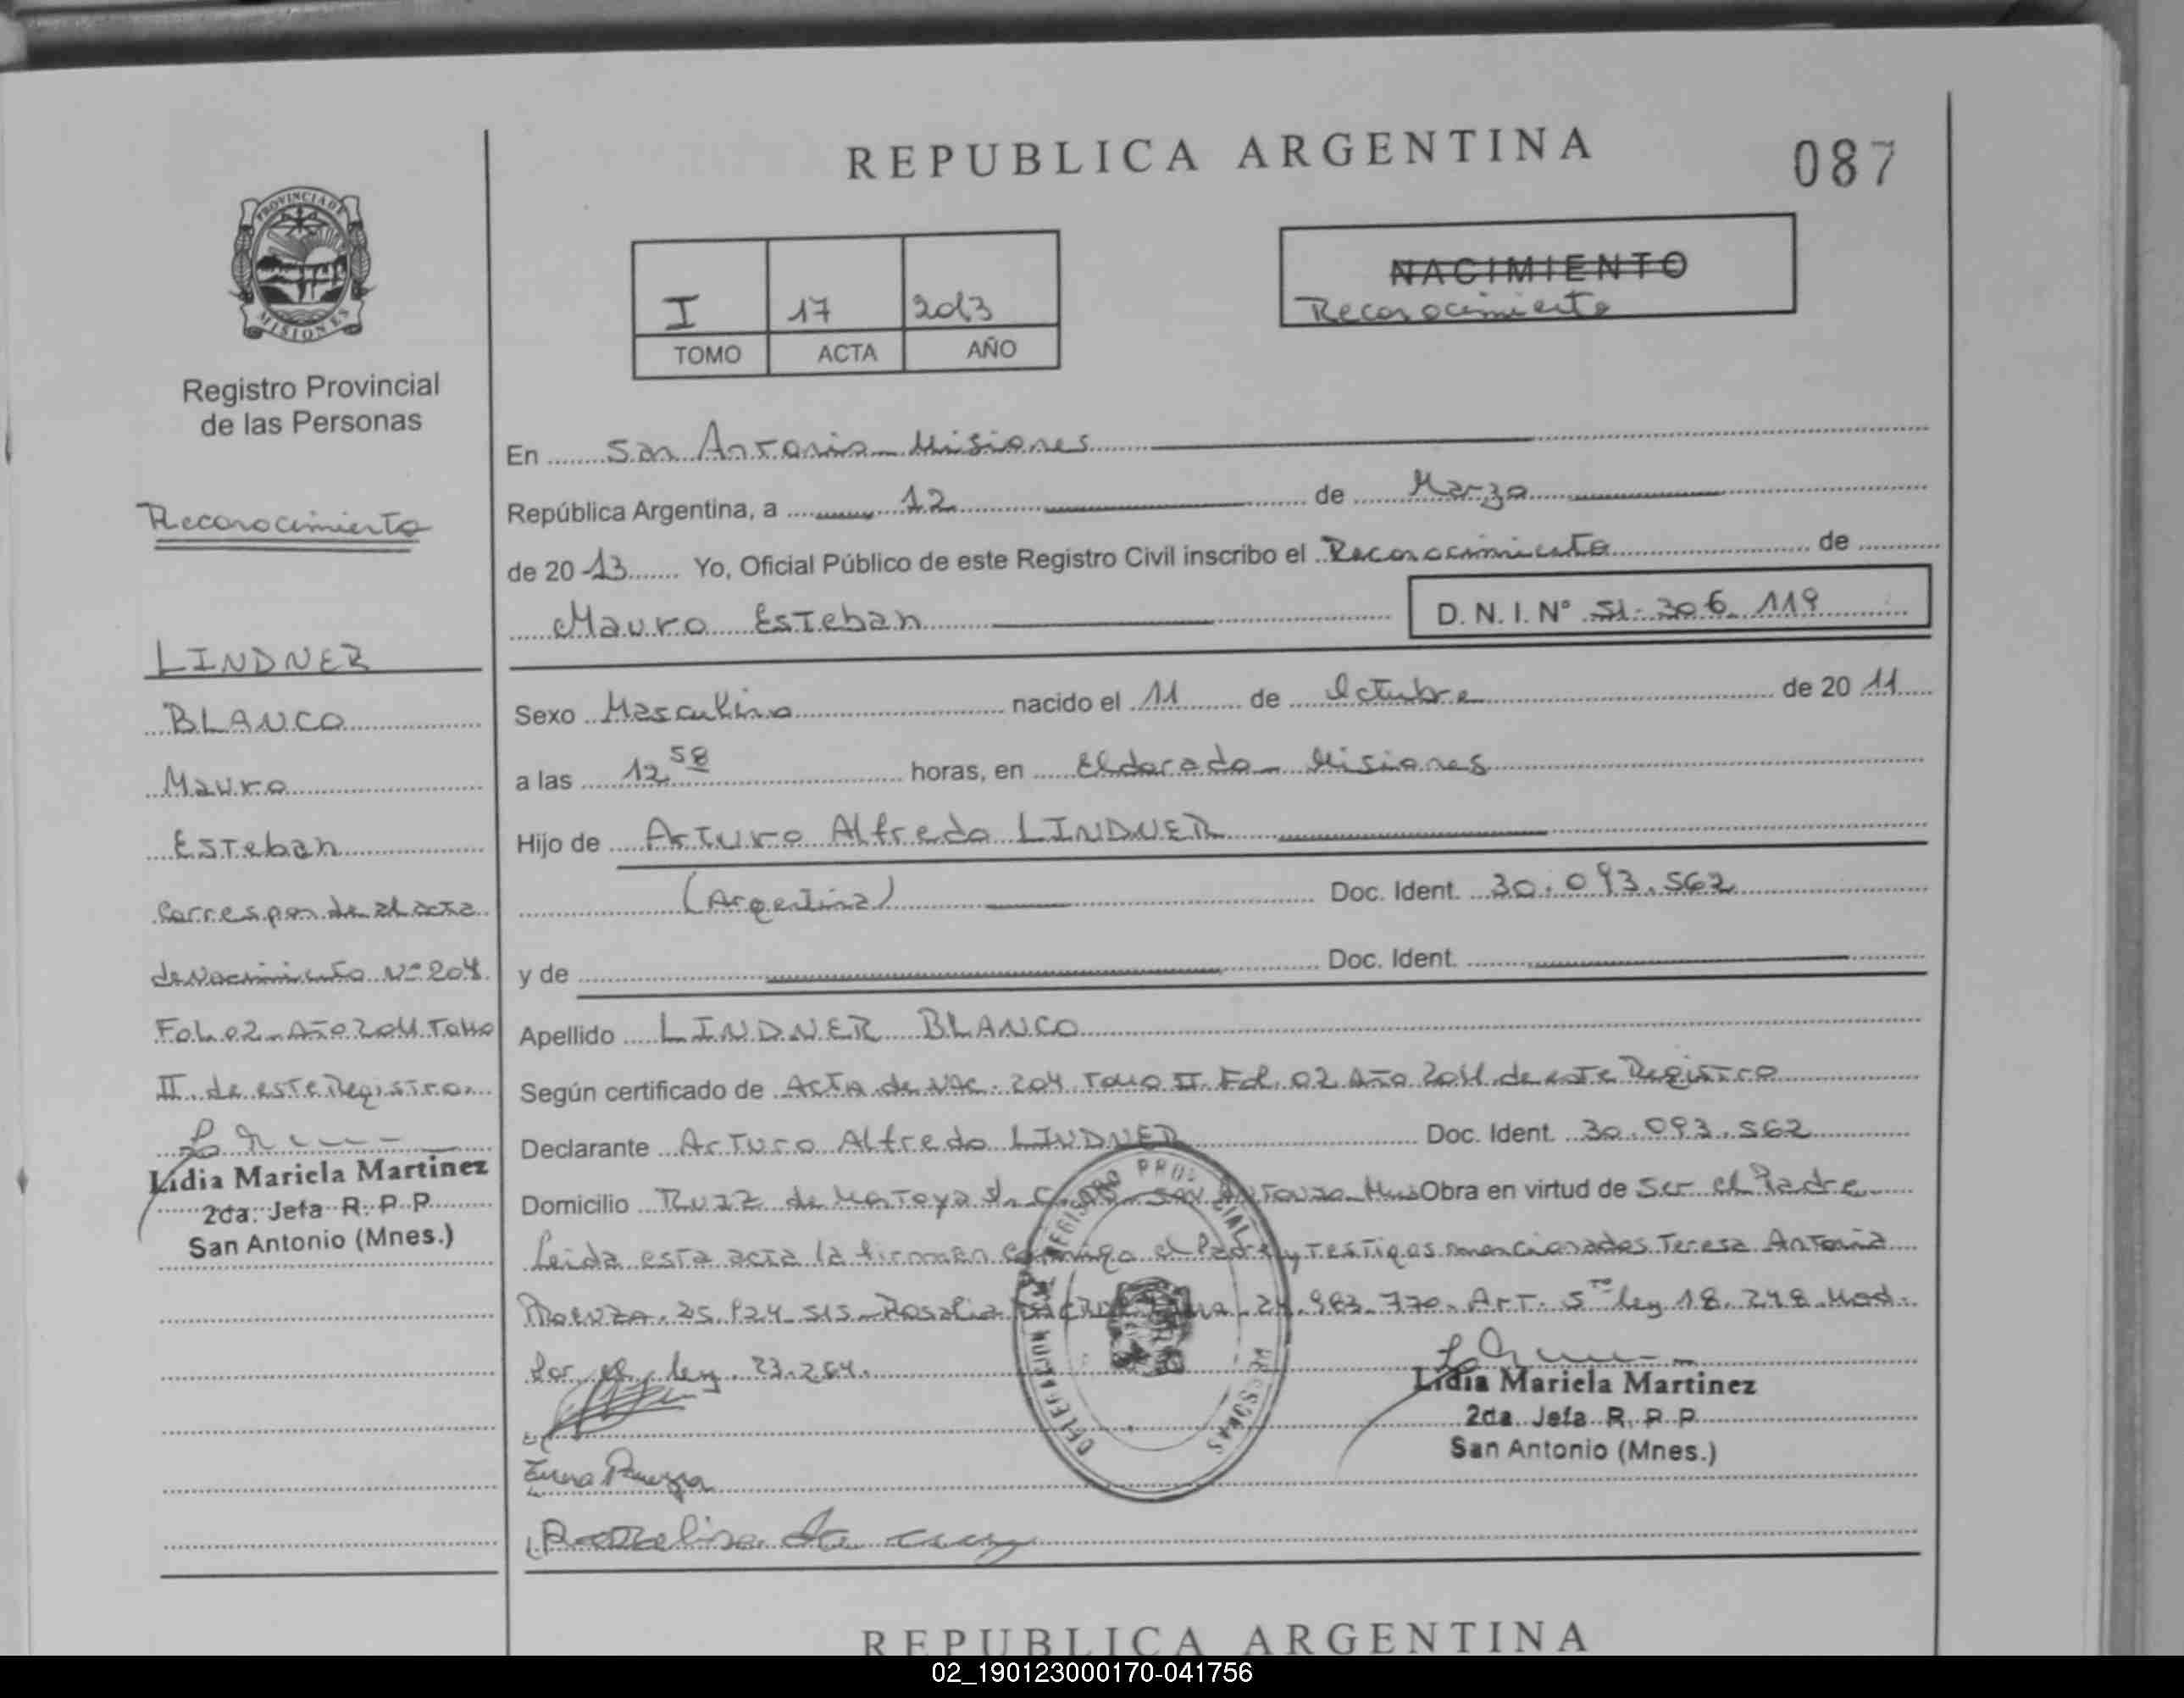 REPUBLICA ARGENTINA
087
PROVINCIA DE MISIONES
Registro Provincial
de las Personas
I 17 2013
TOMO ACTA AÑO
NACIMIENTO
Reconocimiento
Reconocimiento
LINDNER
BLANCO
Mauro
Esteban
Corresponde al acta
de Nacimiento Nº 204.
Fol. 02 - Año 2011. Tomo
II. de este Registro.
Lidia Mariela Martinez
2da. Jefa R. P. P.
San Antonio (Mnes.)
En San Antonio - Misiones
República Argentina, a 12 de Marzo
de 2013 Yo, Oficial Público de este Registro Civil inscribo el Reconocimiento de
Mauro Esteban D. N. I. N° 51.306.119
Sexo Masculino nacido el 11 de Octubre de 2011
a las 12 58 horas, en Eldorado - Misiones
Hijo de Arturo Alfredo LINDNER
(Argentina) Doc. Ident. 30.093.562
y de Doc. Ident.
Apellido LINDNER BLANCO
Según certificado de Acta de Nac. 204 Tomo II. Fol. 02 Año 2011 de este Registro
Declarante Arturo Alfredo LINDNER Doc. Ident. 30.093.562
Domicilio Ruiz de Montoya San Antonio Mnes Obra en virtud de Ser el Padre
Leida esta acta la firman conmigo el Padre y Testigos mencionados Teresa Antonia
515 - Rosalia 24.983.770. Art. 5to ley 18.248 Mod.
Por ley. 23.264.
Lidia Mariela Martinez
2da. Jefa R. P. P.
San Antonio (Mnes.)
REPUBLICA ARGENTINA
02_190123000170-041756